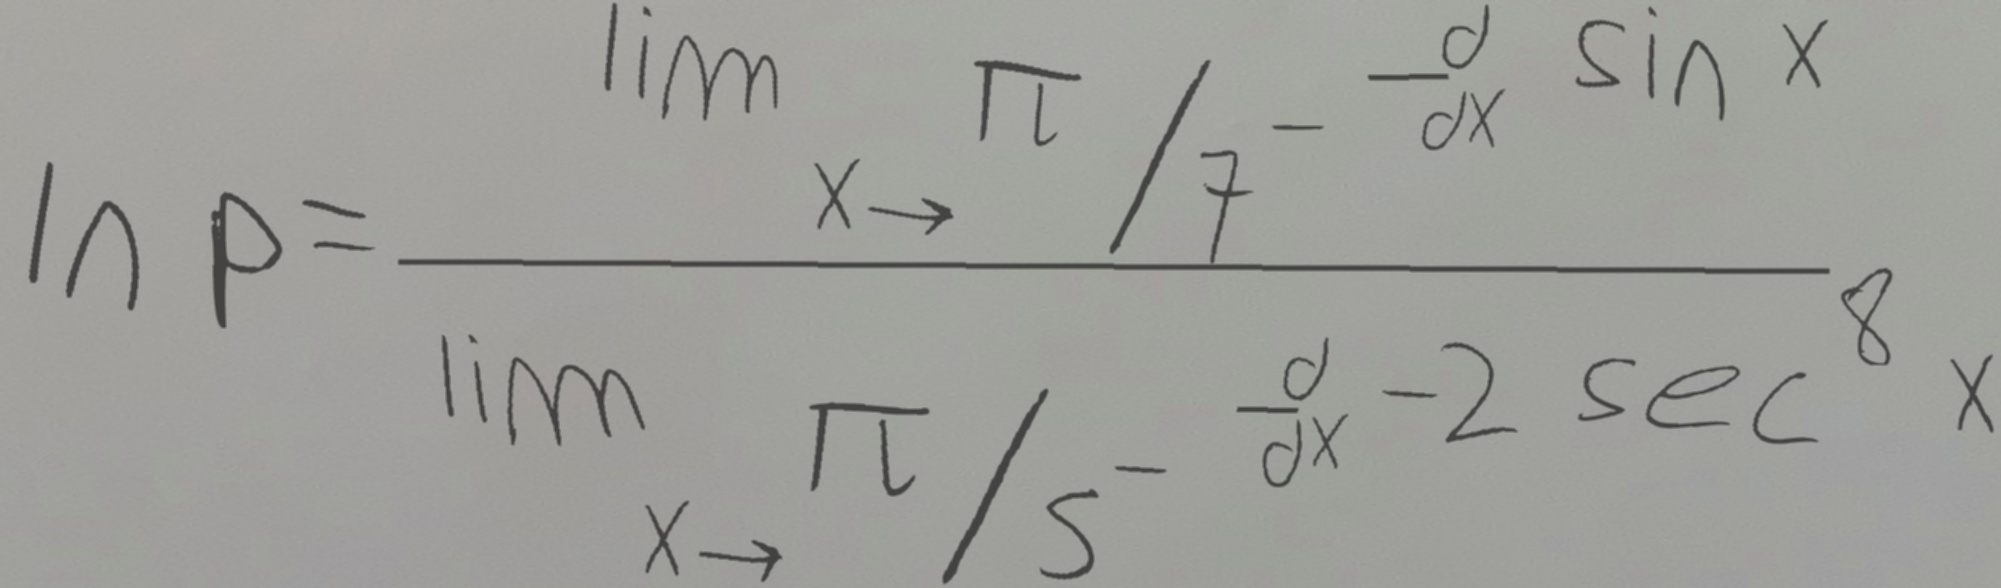 ln p = \frac{\lim_{x \to \pi/7^-} \frac{d}{dx} \sin x}{\lim_{x \to \pi/5^-} \frac{d}{dx} -2 \sec^8 x}